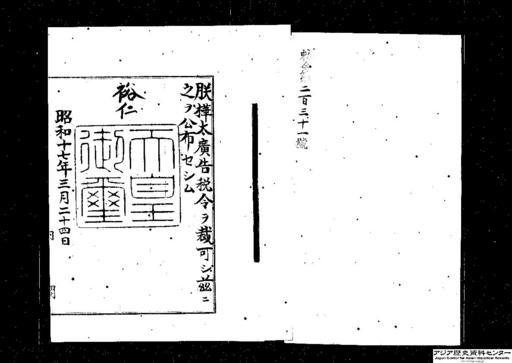 勅令第二百三十一號
朕樺太廣告税令ヲ裁可シ茲ニ
之ヲ公布セシム
裕仁
天皇
御璽
昭和十七年三月二十四日
アジア歴史資料センター
Japan Center for Asian Historical Records